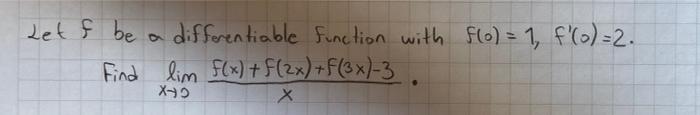 Let f be a differentiable function with f(0) = 1, f'(0) = 2.
Find lim x→0 (f(x) + f(2x) + f(3x) - 3) / x .